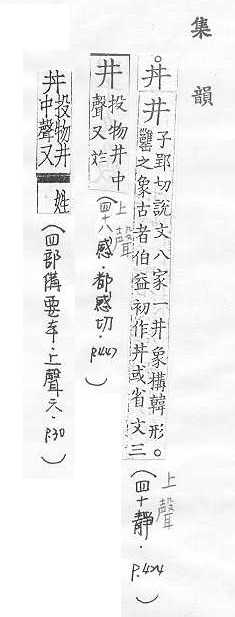 集韻
丼井子郢切説文八家一井象構韓形。
·䍌之象古者伯益初作井或省文三
(上聲 四十靜·P.424)
井投物井中
聲又於
(上聲 四十八感·都感切·P.447)
丼投物井
中聲又姓
(四部備要本·上聲六·P.30)